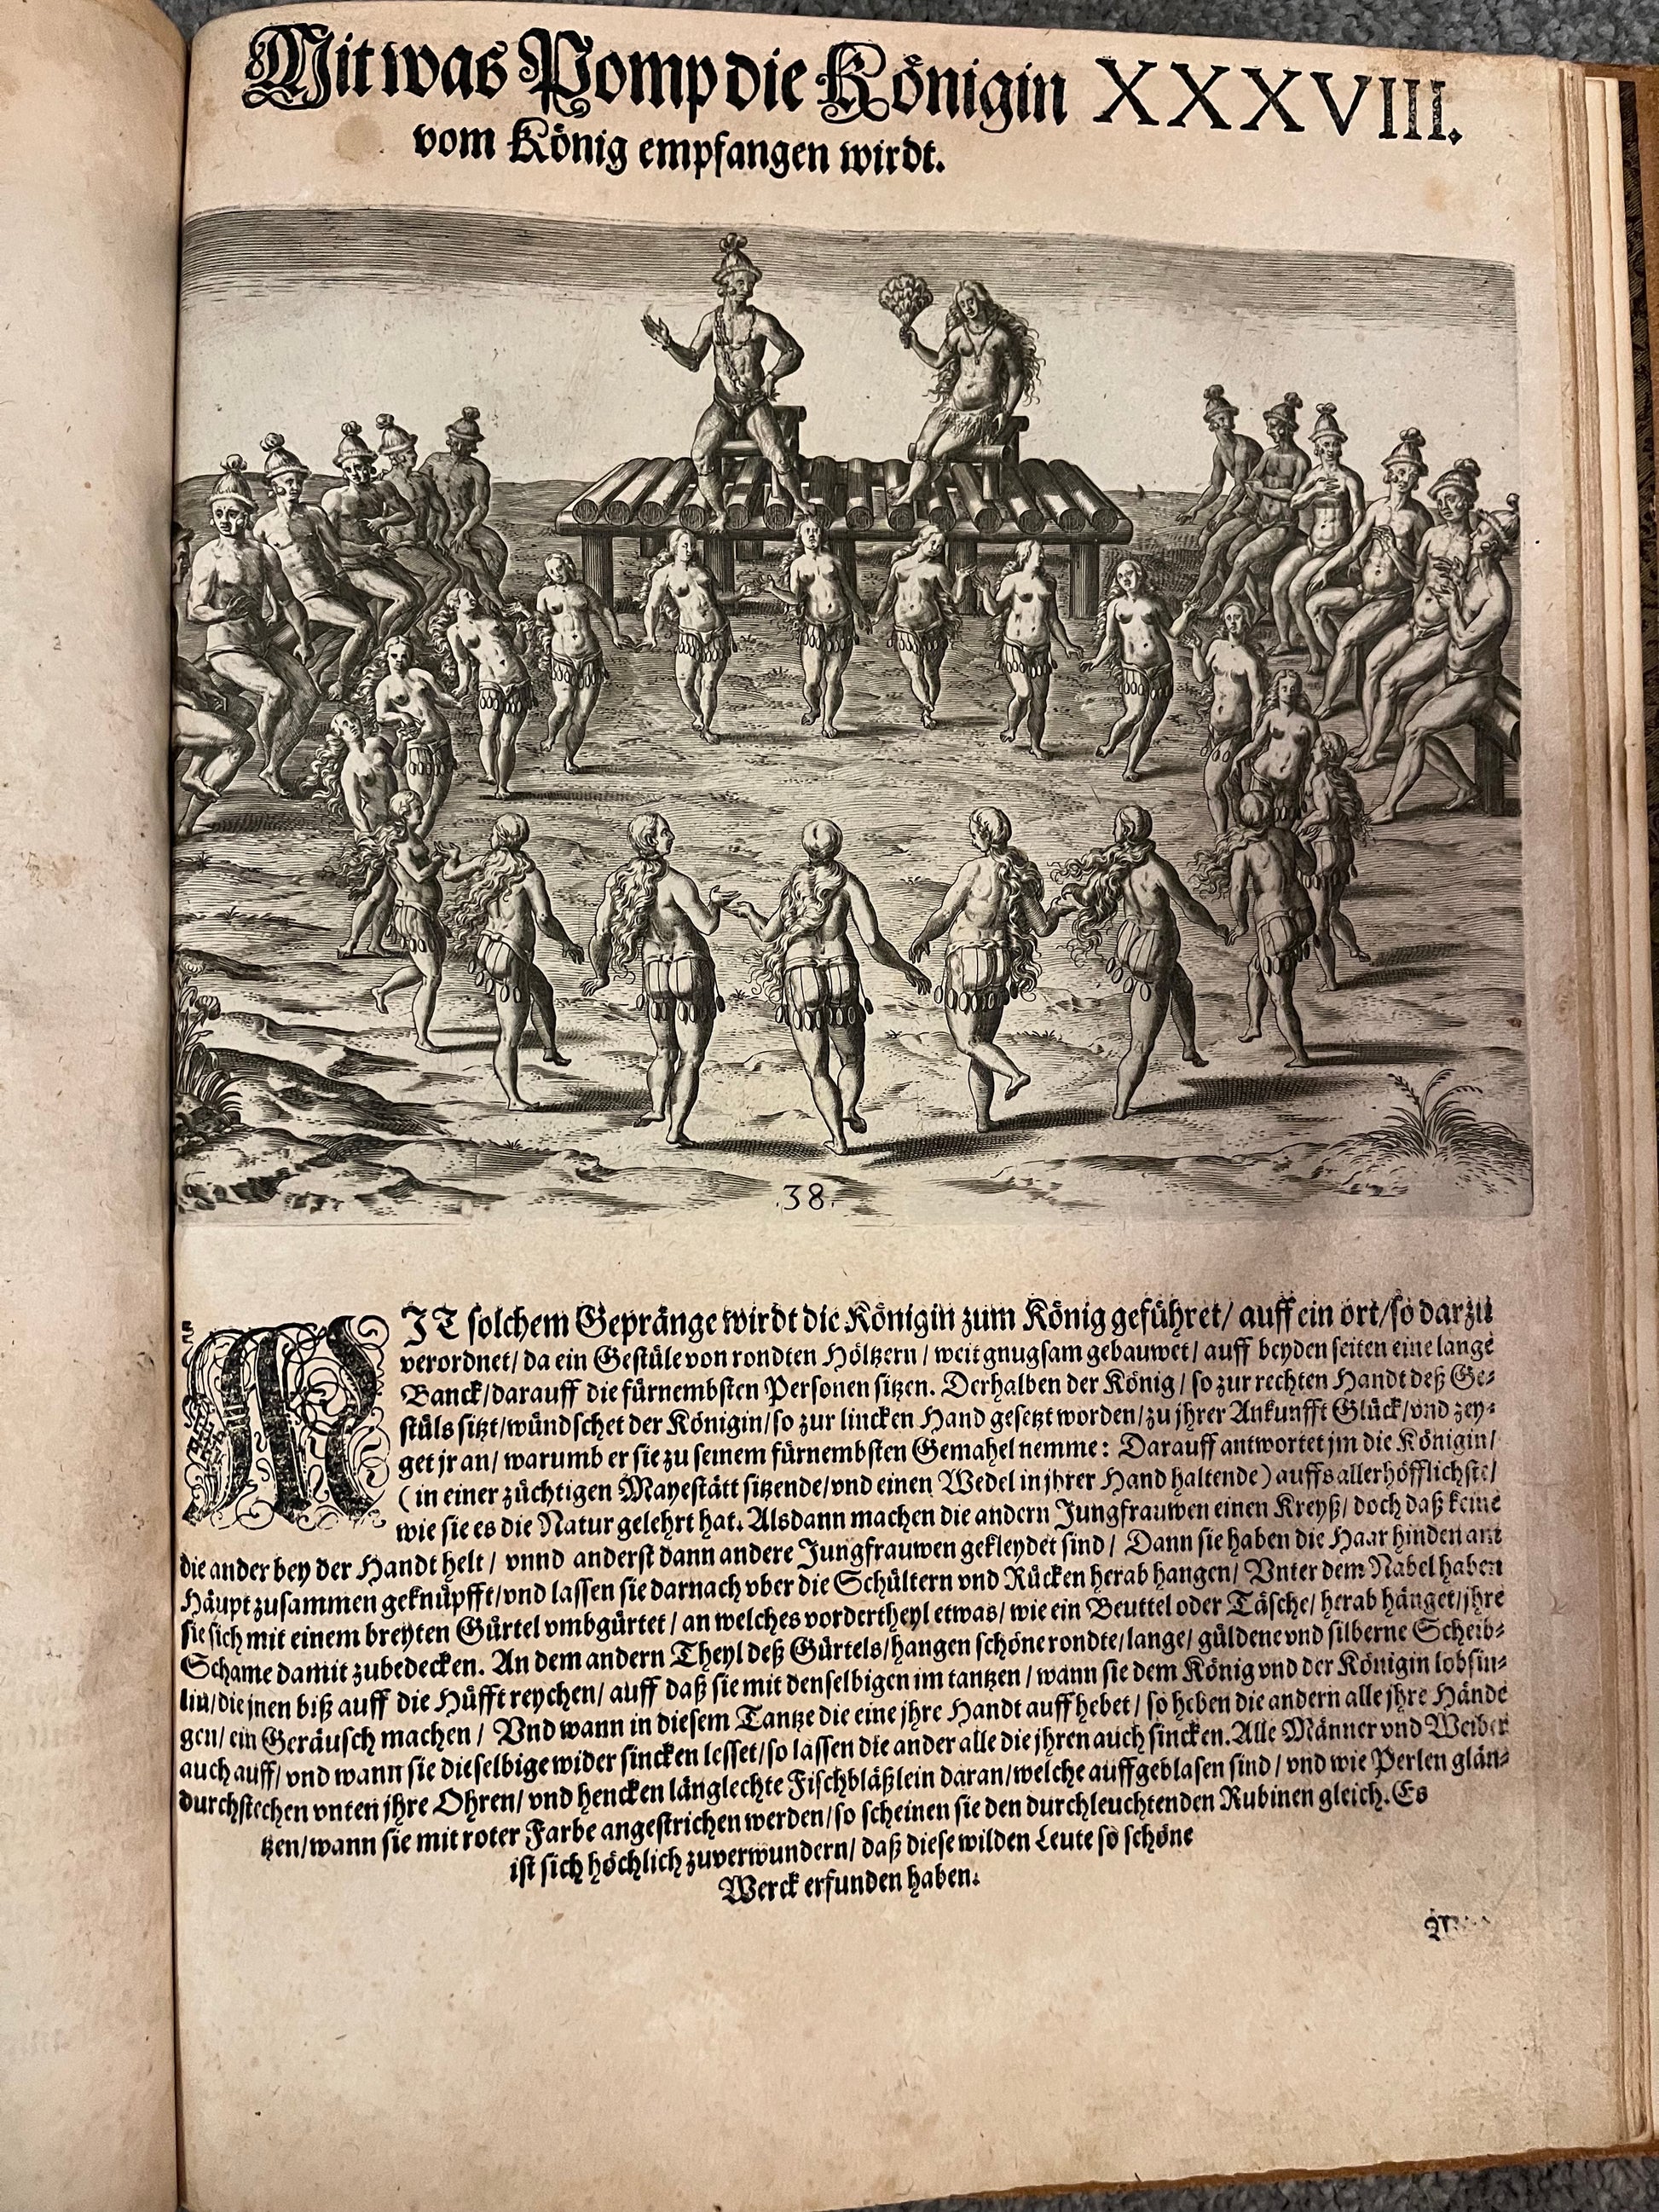 Mit was Pomp die Königin XXXVIII.
vom König empfangen wirdt.
.38.
MIT solchem Gepränge wirdt die Königin zum König geführet/ auff ein ort/ so darzu
verordnet/ da ein Gestüle von rondten Höltzern / weit gnugsam gebauwet/ auff beyden seiten eine lange
Banck/ darauff die fürnembsten Personen sitzen. Derhalben der König / so zur rechten Handt deß Ge-
stüls sitzt/ wündschet der Königin/ so zur lincken Hand gesetzt worden/ zu jhrer Ankunfft Glück/ vnd zey-
get jr an/ warumb er sie zu seinem fürnembsten Gemahel nemme: Darauff antwortet jm die Königin/
(in einer züchtigen Mayestätt sitzende/ vnd einen Wedel in jhrer Hand haltende) auffs allerhöfflichste/
wie sie es die Natur gelehrt hat. Alsdann machen die andern Jungfrauwen einen Kreyß/ doch daß keine
die ander bey der Handt helt / vnnd anderst dann andere Jungfrauwen gekleydet sind / Dann sie haben die Haar hinden am
Häupt zusammen geknüpfft/ vnd lassen sie darnach vber die Schültern vnd Rücken herab hangen/ Vnter dem Nabel haben
sie sich mit einem breyten Gürtel vmbgürtet / an welches vordertheyl etwas/ wie ein Beuttel oder Täsche/ herab hänget/ jhre
Schame damit zubedecken. An dem andern Theyl deß Gürtels/ hangen schöne rondte/ lange/ güldene vnd silberne Scheib-
lin/ die jnen biß auff die Hüfft reychen/ auff daß sie mit denselbigen im tantzen / wann sie dem König vnd der Königin lobsin-
gen/ ein Geräusch machen / Vnd wann in diesem Tantze die eine jhre Handt auff hebet/ so heben die andern alle jhre Hände
auch auff/ vnd wann sie dieselbige wider sincken lesset/ so lassen die ander alle die jhren auch sincken. Alle Männer vnd Weiber
durchstechen vnten jhre Ohren/ vnd hencken länglechte Fischbläßlein daran/ welche auffgeblasen sind / vnd wie Perlen glän-
tzen/ wann sie mit roter Farbe angestrichen werden/ so scheinen sie den durchleuchtenden Rubinen gleich. Es
ist sich höchlich zuverwundern/ daß diese wilden Leute so schöne
Werck erfunden haben.